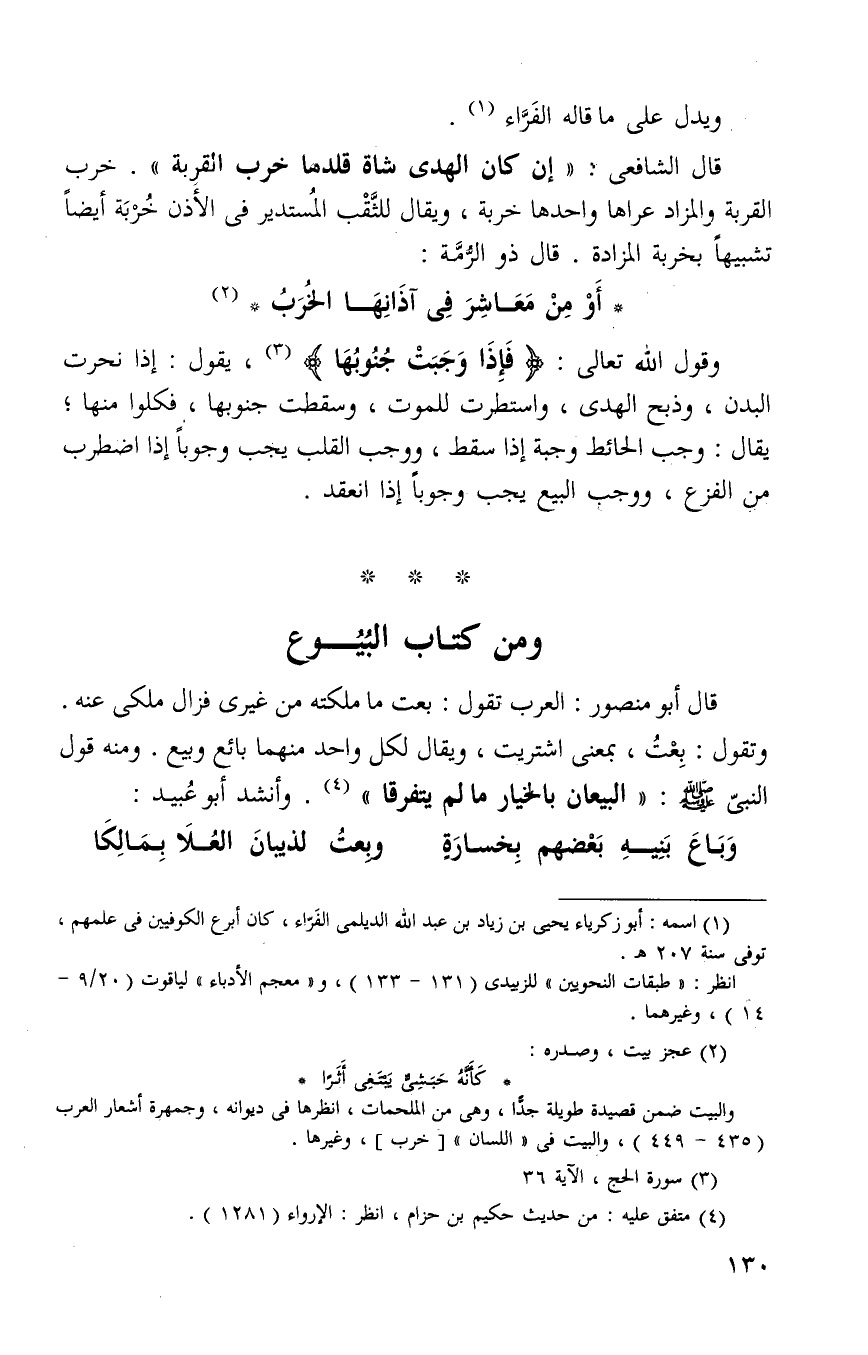 ويدل على ما قاله الفَرَّاء (١) .
قال الشافعى : « إن كان الهدى شاة قلدما خرب القربة » . خرب
القربة والمزاد عراها واحدها خربة ، ويقال للثَّقْب المُستدير فى الأذن خُرْبَة أيضاً
تشبيهاً بخربة المزادة . قال ذو الرُّمَّة :
* أَوْ مِنْ مَعَـاشِرَ فِى آذَانِهَـا الخُرَبُ * (٢)
وقول الله تعالى : ﴿ فَإِذَا وَجَبَتْ جُنُوبُهَا ﴾ (٣) ، يقول : إذا نحرت
البدن ، وذبح الهدى ، واستطرت للموت ، وسقطت جنوبها ، فكلوا منها ؛
يقال : وجب الحائط وجبة إذا سقط ، ووجب القلب يجب وجوباً إذا اضطرب
من الفزع ، ووجب البيع يجب وجوباً إذا انعقد .
* * *
ومن كتـاب البُيُـــوع
قال أبو منصور : العرب تقول : بعت ما ملكته من غيرى فزال ملكى عنه .
وتقول : بِعْتُ ، بمعنى اشتريت ، ويقال لكل واحد منهما بائع وبيع . ومنه قول
النبىّ ﷺ : « البيعان بالخيار ما لم يتفرقا » (٤) . وأنشد أبو عُبيـد :
وَبَـاعَ بَنِيــهِ بَعْضهم بِخسـارَةٍ وبِعتُ لذبيانَ العُـلَا بِـمَـالِكَا
(١) اسمه : أبو زكرياء يحيى بن زياد بن عبد الله الديلمى الفَرّاء ، كان أبرع الكوفيين فى علمهم ،
توفى سنة ٢٠٧ هـ .
انظر : « طبقات النحويين » للزبيدى ( ١٣١ – ١٣٣ ) ، و« معجم الأدباء » لياقوت ( ٩/٢٠ –
١٤ ) ، وغيرهما .
(٢) عجز بيت ، وصـدره :
* كَأَنَّهُ حَبَشِىٌّ يَبْتَغِى أَثَرًا *
والبيت ضمن قصيدة طويلة جدًّا ، وهى من الملحمات ، انظرها فى ديوانه ، وجمهرة أشعار العرب
( ٤٣٥ – ٤٤٩ ) ، والبيت فى « اللسان » [ خرب ] ، وغيرها .
(٣) سورة الحج ، الآية ٣٦
(٤) متفق عليه : من حديث حكيم بن حزام ، انظر : الإرواء ( ١٢٨١ ) .
١٣٠